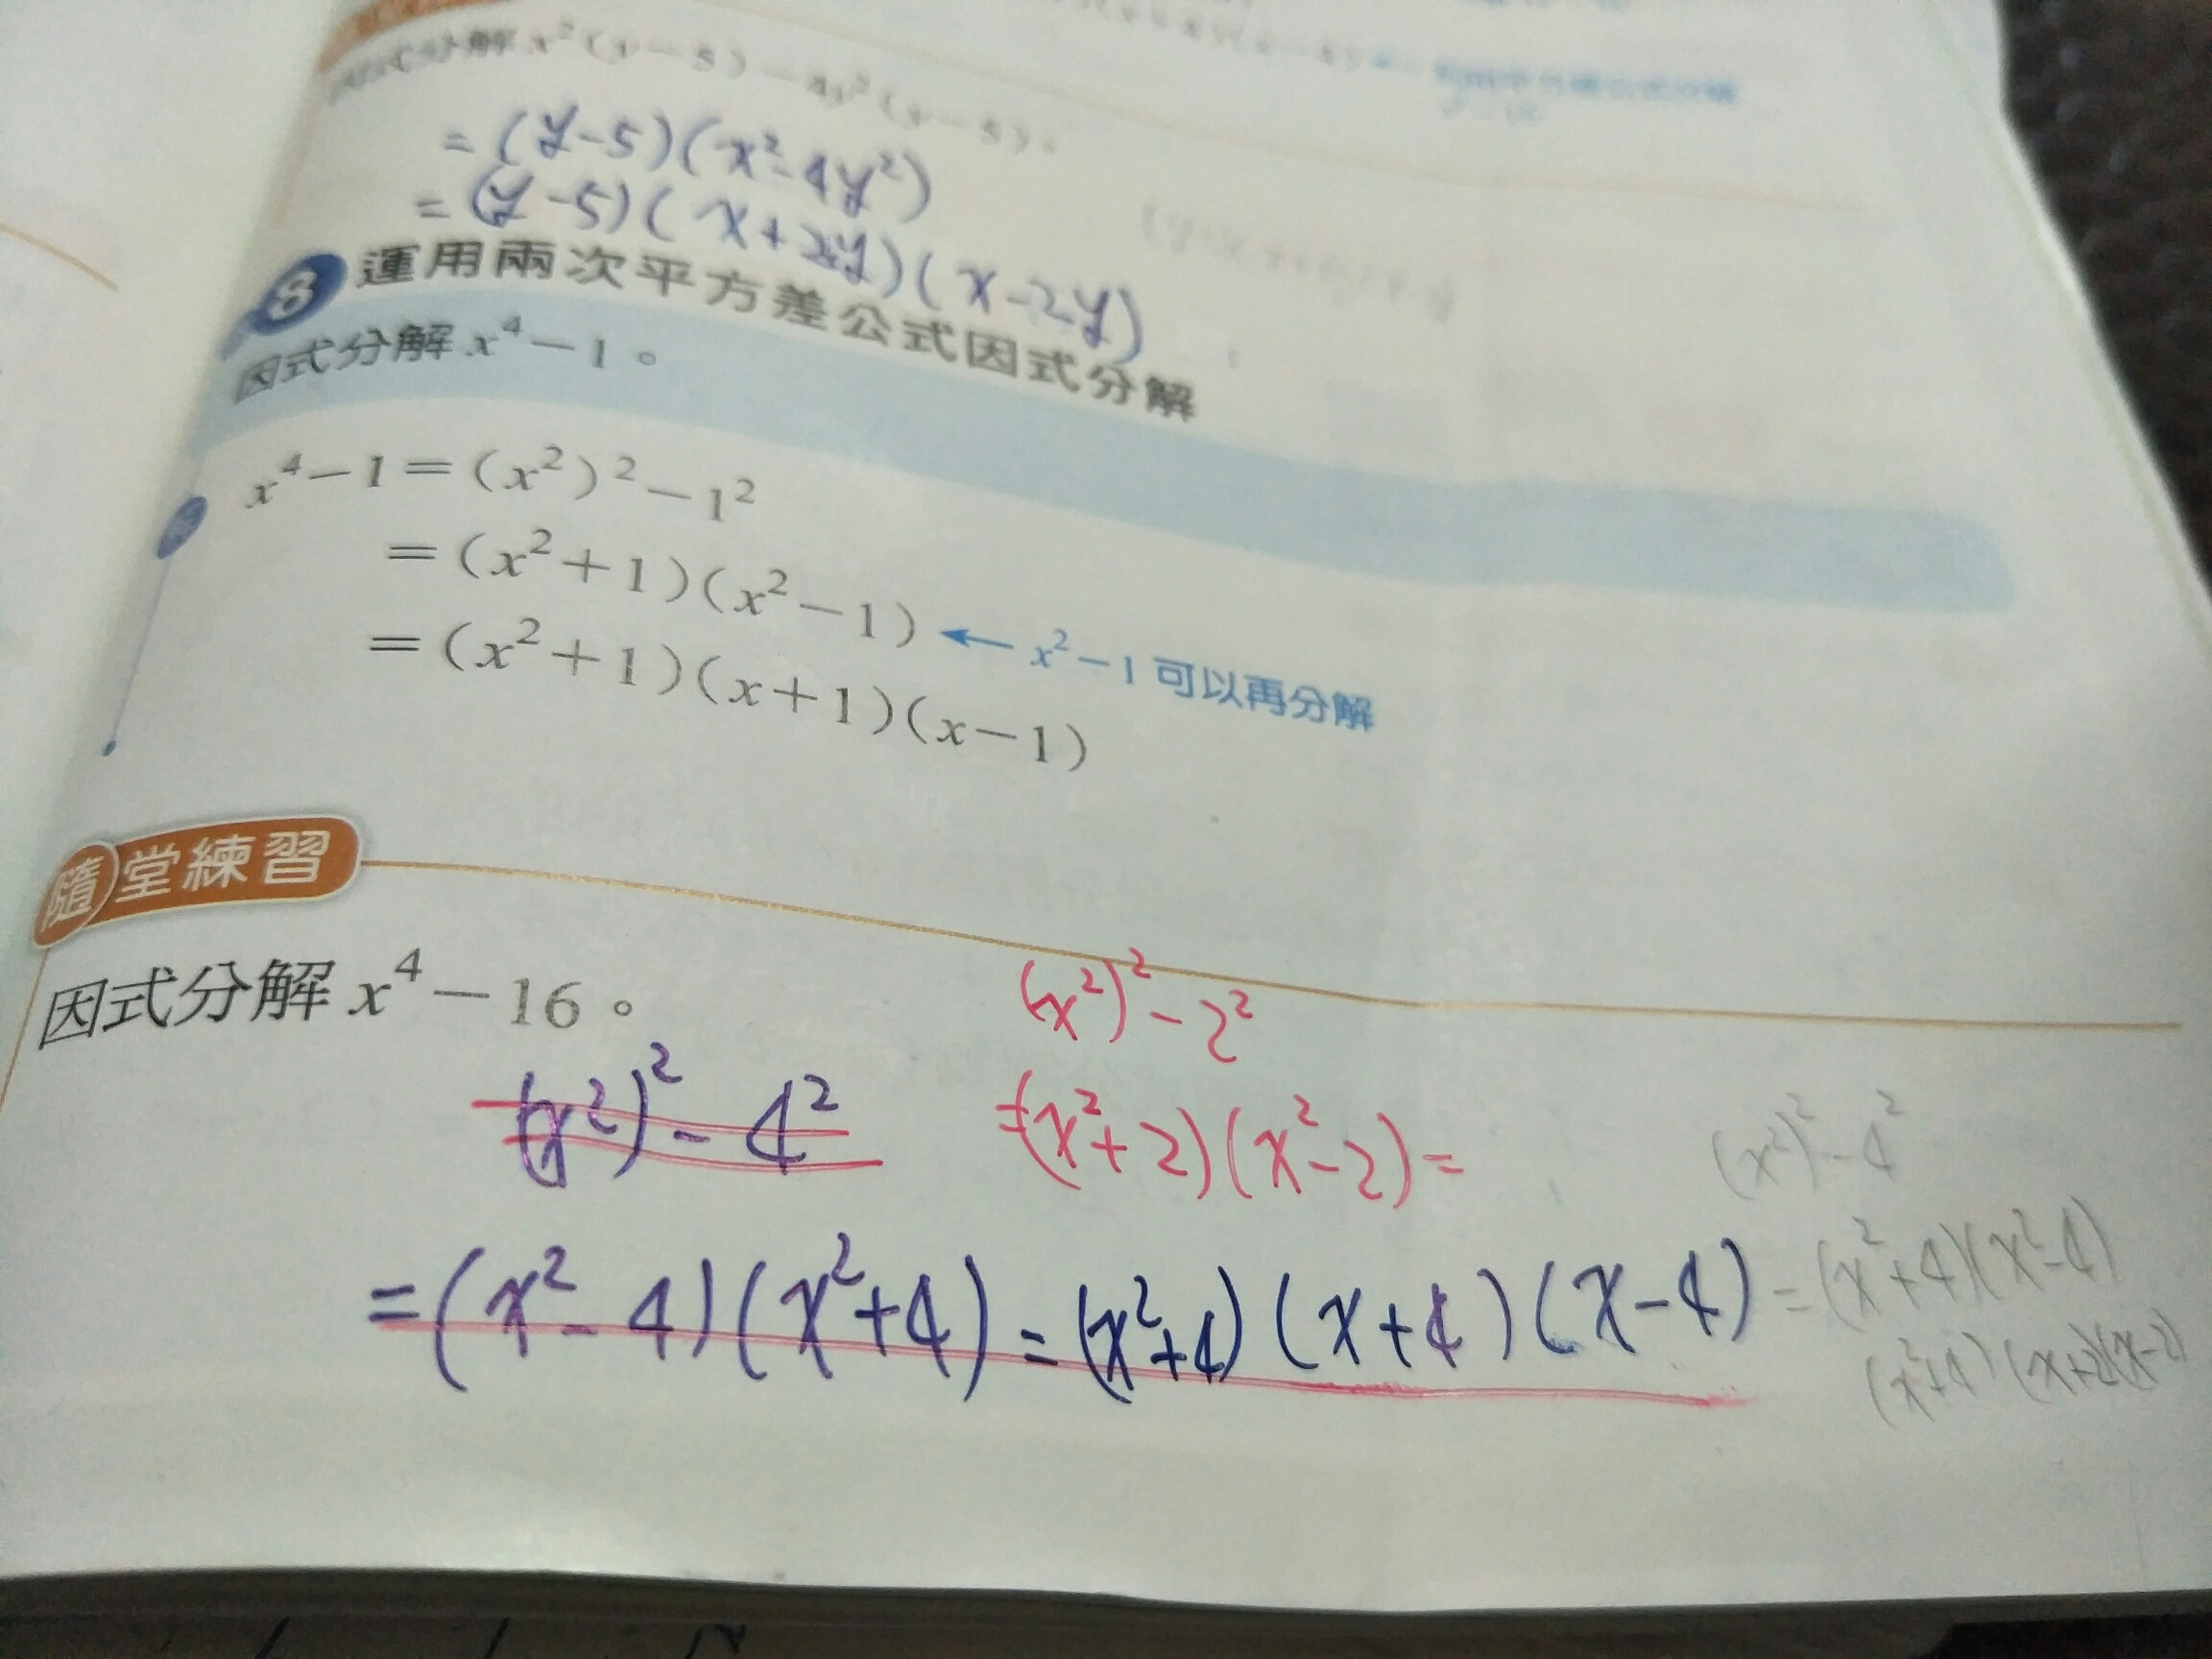 分解 x²(y－5)－4y²(y－5)。
= (y-5)(x²-4y²)
= (y-5)(x+2y)(x-2y)
8 運用兩次平方差公式因式分解
因式分解 x⁴－1。
x⁴－1＝(x²)²－1²
＝(x²＋1)(x²－1) ← x²－1 可以再分解
＝(x²＋1)(x＋1)(x－1)
隨堂練習
因式分解 x⁴－16。
(x²)²-2²
(x²)²-4²
=(x²+2)(x²-2)=
(x²)²-4²
=(x²-4)(x²+4)=(x²+4)(x+4)(x-4)
=(x²+4)(x²-4)
(x²+4)(x+2)(x-2)